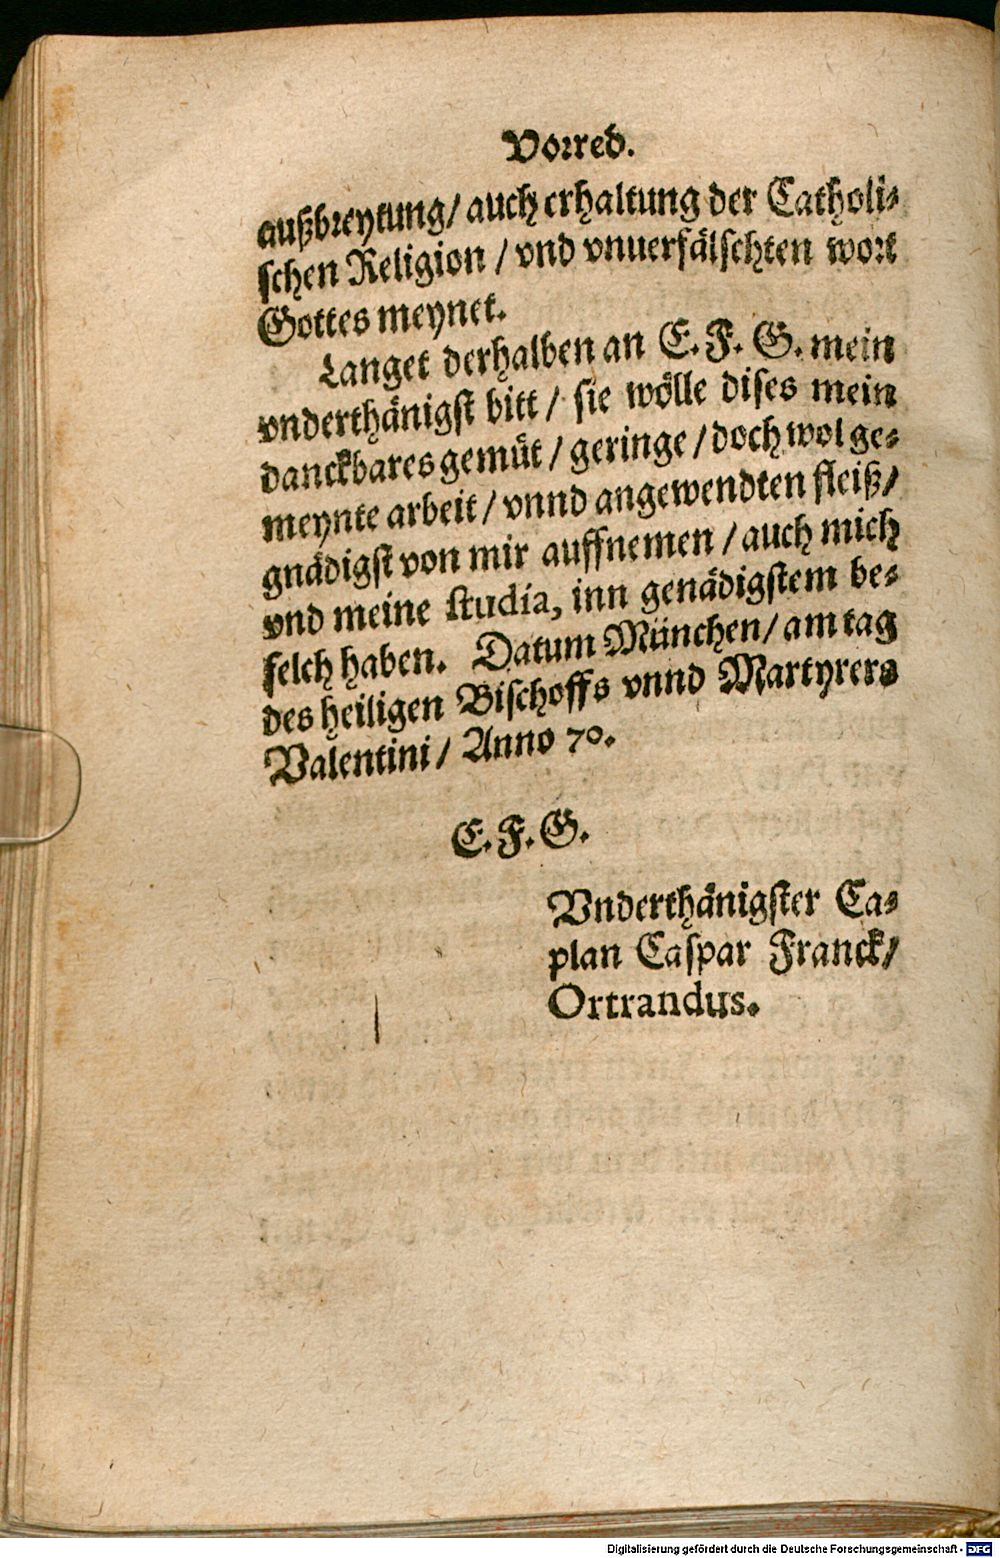 Vorred.
außbreytung/ auch erhaltung der Catholi-
schen Religion / vnd vnuerfälschten wort
Gottes meynet.
Langet derhalben an E. F. G. mein
vnderthänigst bitt / sie wölle dises mein
danckbares gemüt / geringe / doch wol ge-
meynte arbeit / vnnd angewendten fleiß/
gnädigst von mir auffnemen / auch mich
vnd meine studia, inn genädigstem be-
felch haben. Datum München/ am tag
des heiligen Bischoffs vnnd Martyrers
Valentini/ Anno 70.
E. F. G.
Vnderthänigster Ca-
plan Caspar Franck/
Ortrandus.
Digitalisierung gefördert durch die Deutsche Forschungsgemeinschaft - DFG